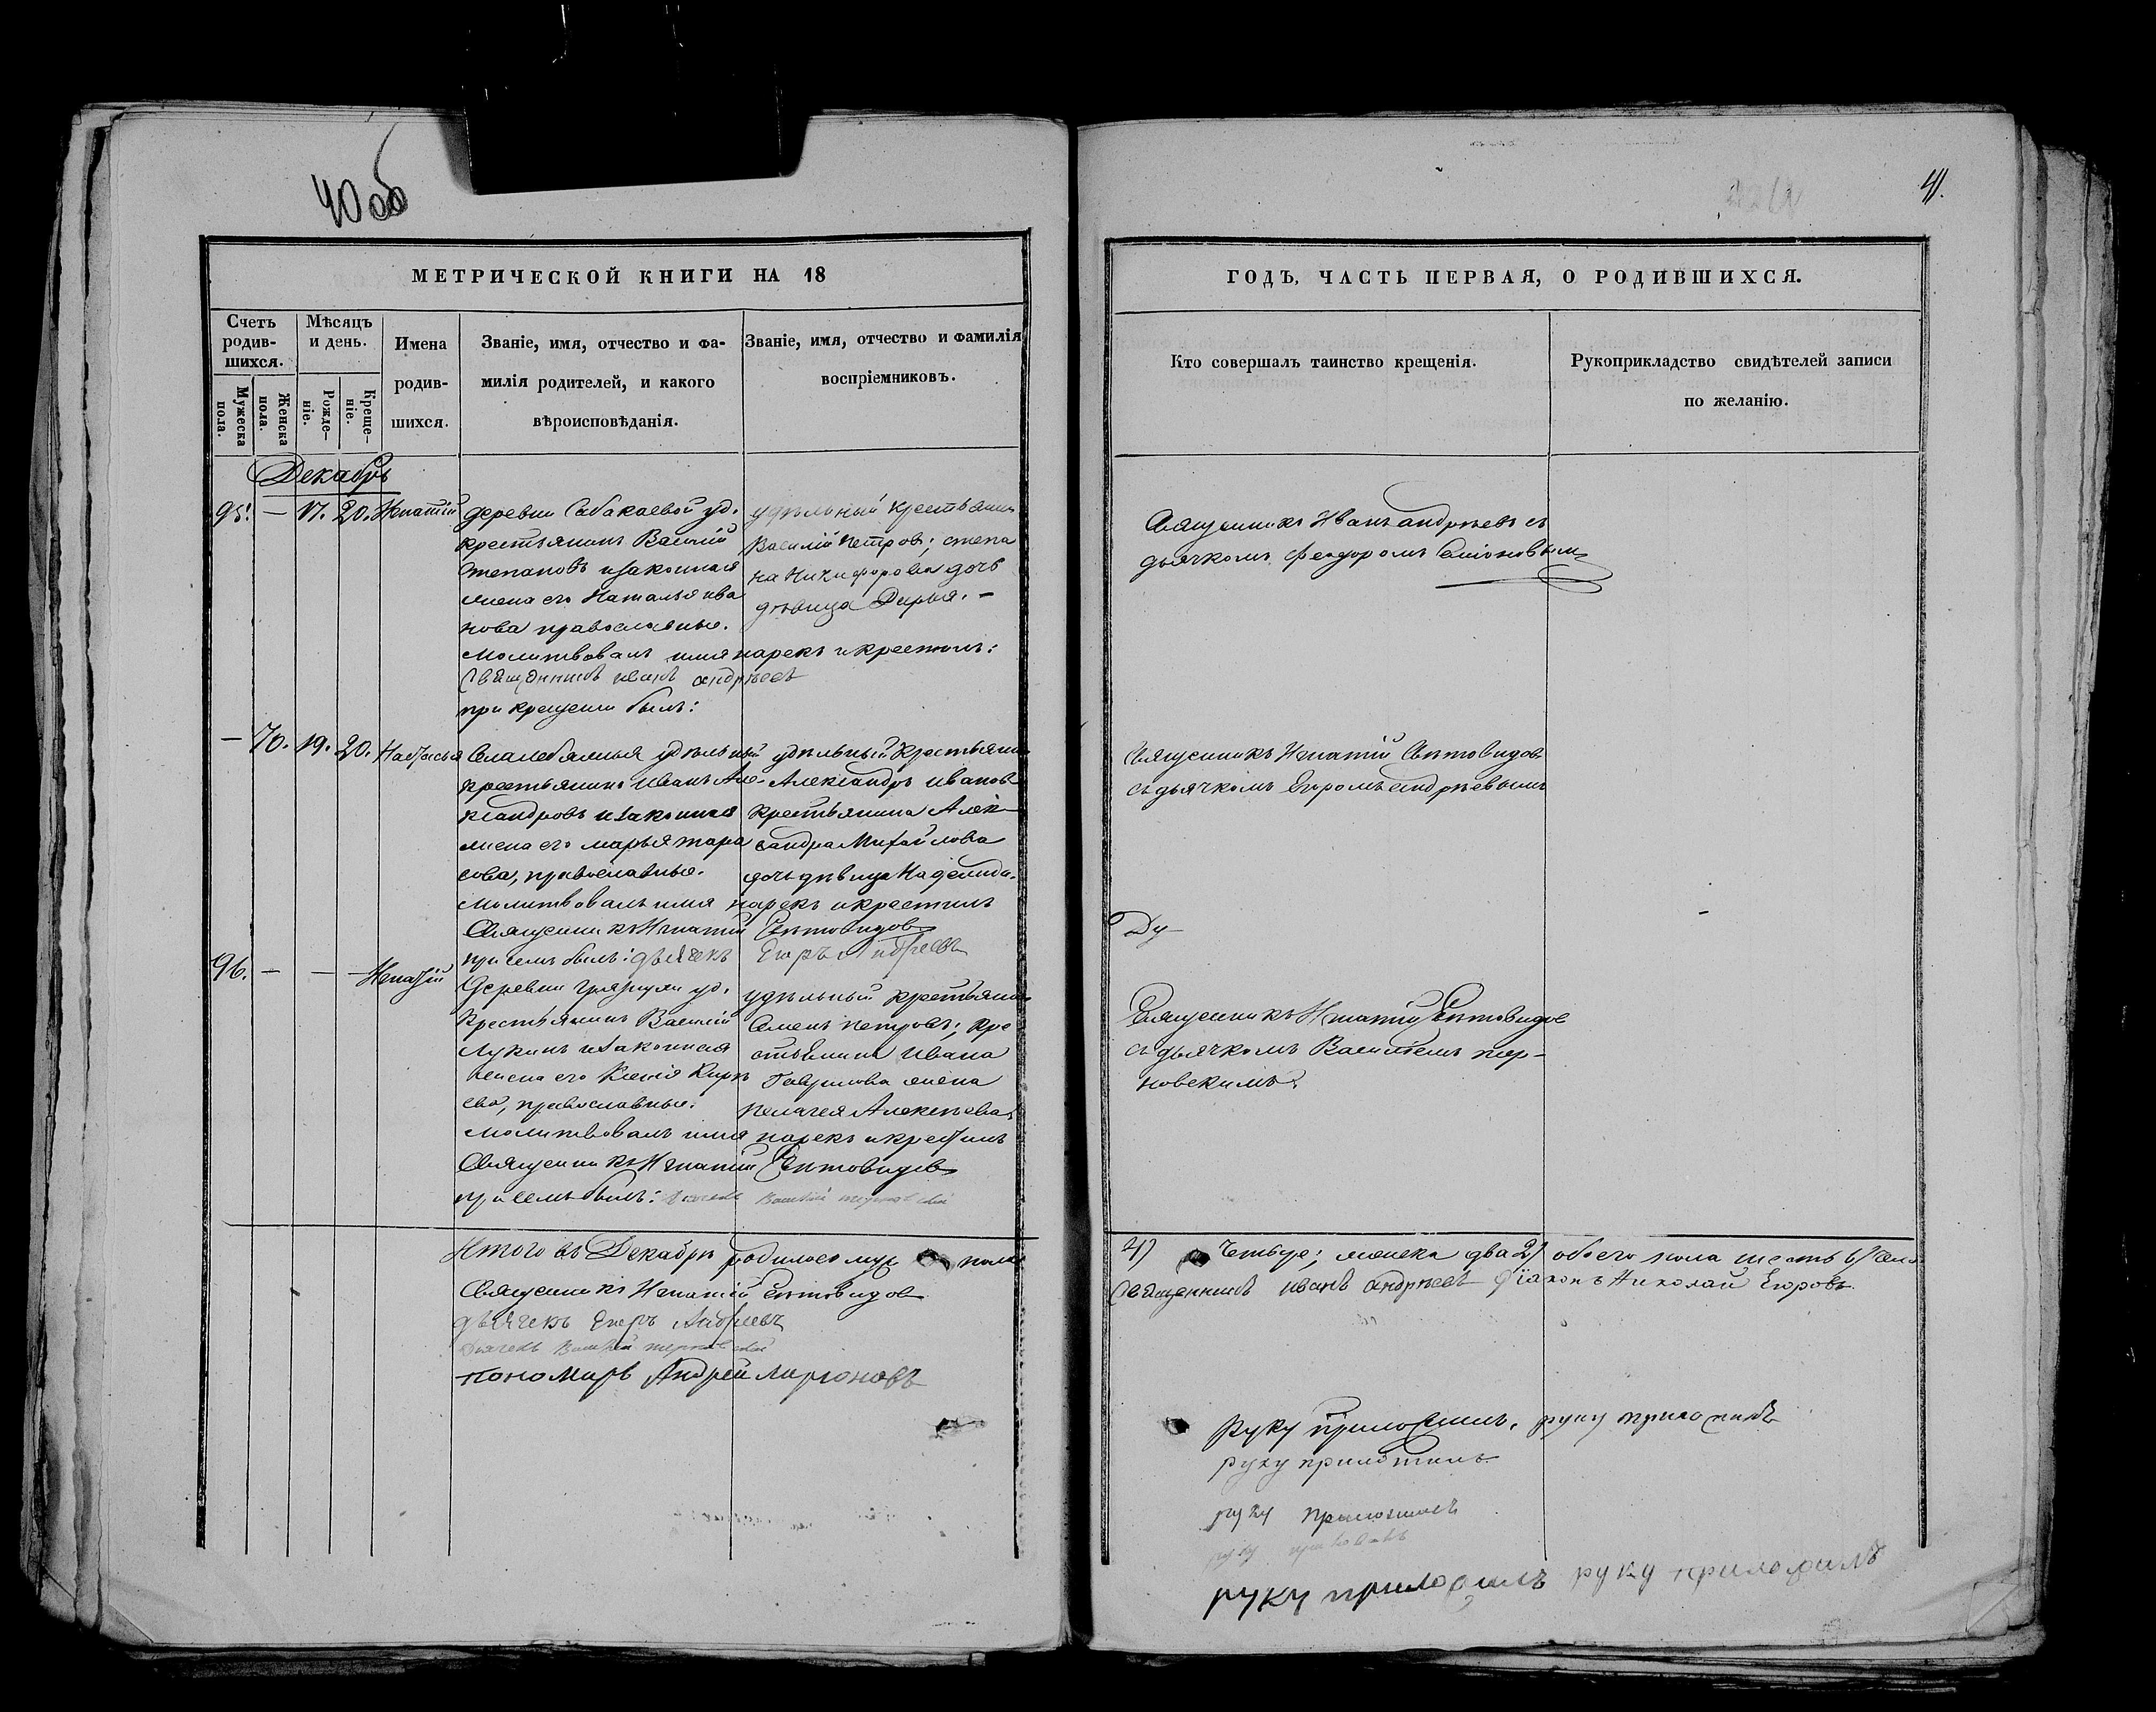 40 об
МЕТРИЧЕСКОЙ КНИГИ НА 18
Счетъ родив-шихся.
Мужеска пола.
Женска пола.
Мѣсяцъ и день.
Рожде-ніе.
Креще-ніе.
Имена родив-шихся.
Званіе, имя, отчество и фа-
милія родителей, и какого
вѣроисповѣданія.
Званіе, имя, отчество и фамилія
воспріемниковъ.
Декабрь
95. — 17. 20. Игнатій
деревни Сабакаевой уд.
крестьянинъ Василій
Степановъ и законная
жена его Наталья Ива
нова православные.
удѣльный крестьянинъ
Василій Петровъ; Степа
на Никифорова дочь
дѣвица Дарья. —
Молитвовалъ имя нарекъ и крестилъ:
Священникъ Иванъ Андрѣевъ
при крещеніи былъ:
— 70. 19. 20. Настасья
удѣльный
крестьянинъ Иванъ Але-
ксандровъ и законная
жена его Марья Тара
сова, православные.
удѣльный крестьянинъ
Александръ Ивановъ
крестьянина Алек-
сандра Михайлова
дочь дѣвица Надежда.
Молитвовалъ имя нарекъ и крестилъ
Священникъ Игнатій Свѣтовидовъ
при семъ былъ: дьячекъ Егоръ Андреевъ
96. — — — Игнатій
Деревни Грязнухи уд.
крестьянинъ Василій
Лукинъ и законная
жена его Ксенія Кирѣ
ева, православные.
удѣльный крестьянинъ
Семенъ Петровъ; кре
стьянина Ивана
Гаврилова жена
Пелагея Алексѣева,
Молитвовалъ имя нарекъ и крестилъ
Священникъ Игнатій Свѣтовидовъ
при семъ былъ: дьячекъ Василій
Итого въ Декабрѣ родилось муж. пола
Священникъ Игнатій Свѣтовидовъ
дьячекъ Егоръ Андреевъ
дьячекъ Василій
пономарь Андрей Ларіоновъ
41.
ГОДЪ, ЧАСТЬ ПЕРВАЯ, О РОДИВШИХСЯ.
Кто совершалъ таинство крещенія.
Рукоприкладство свидѣтелей записи
по желанію.
Священникъ Иванъ Андрѣевъ съ
дьячкомъ Феодоромъ Симоновымъ
Священникъ Игнатій Свѣтовидовъ
съ дьячкомъ Егоромъ Андрѣевымъ
Ду—
Священникъ Игнатій Свѣтовидовъ
съ дьячкомъ Василіемъ Тер-
новскимъ.
4) четыре; женска два 2) обоего пола шесть 6)
Священникъ Иванъ Андрѣевъ Діаконъ Николай Егоровъ
Руку приложилъ, руку приложилъ
руку приложилъ
руку приложилъ
руку приложилъ
руку приложилъ руку приложилъ